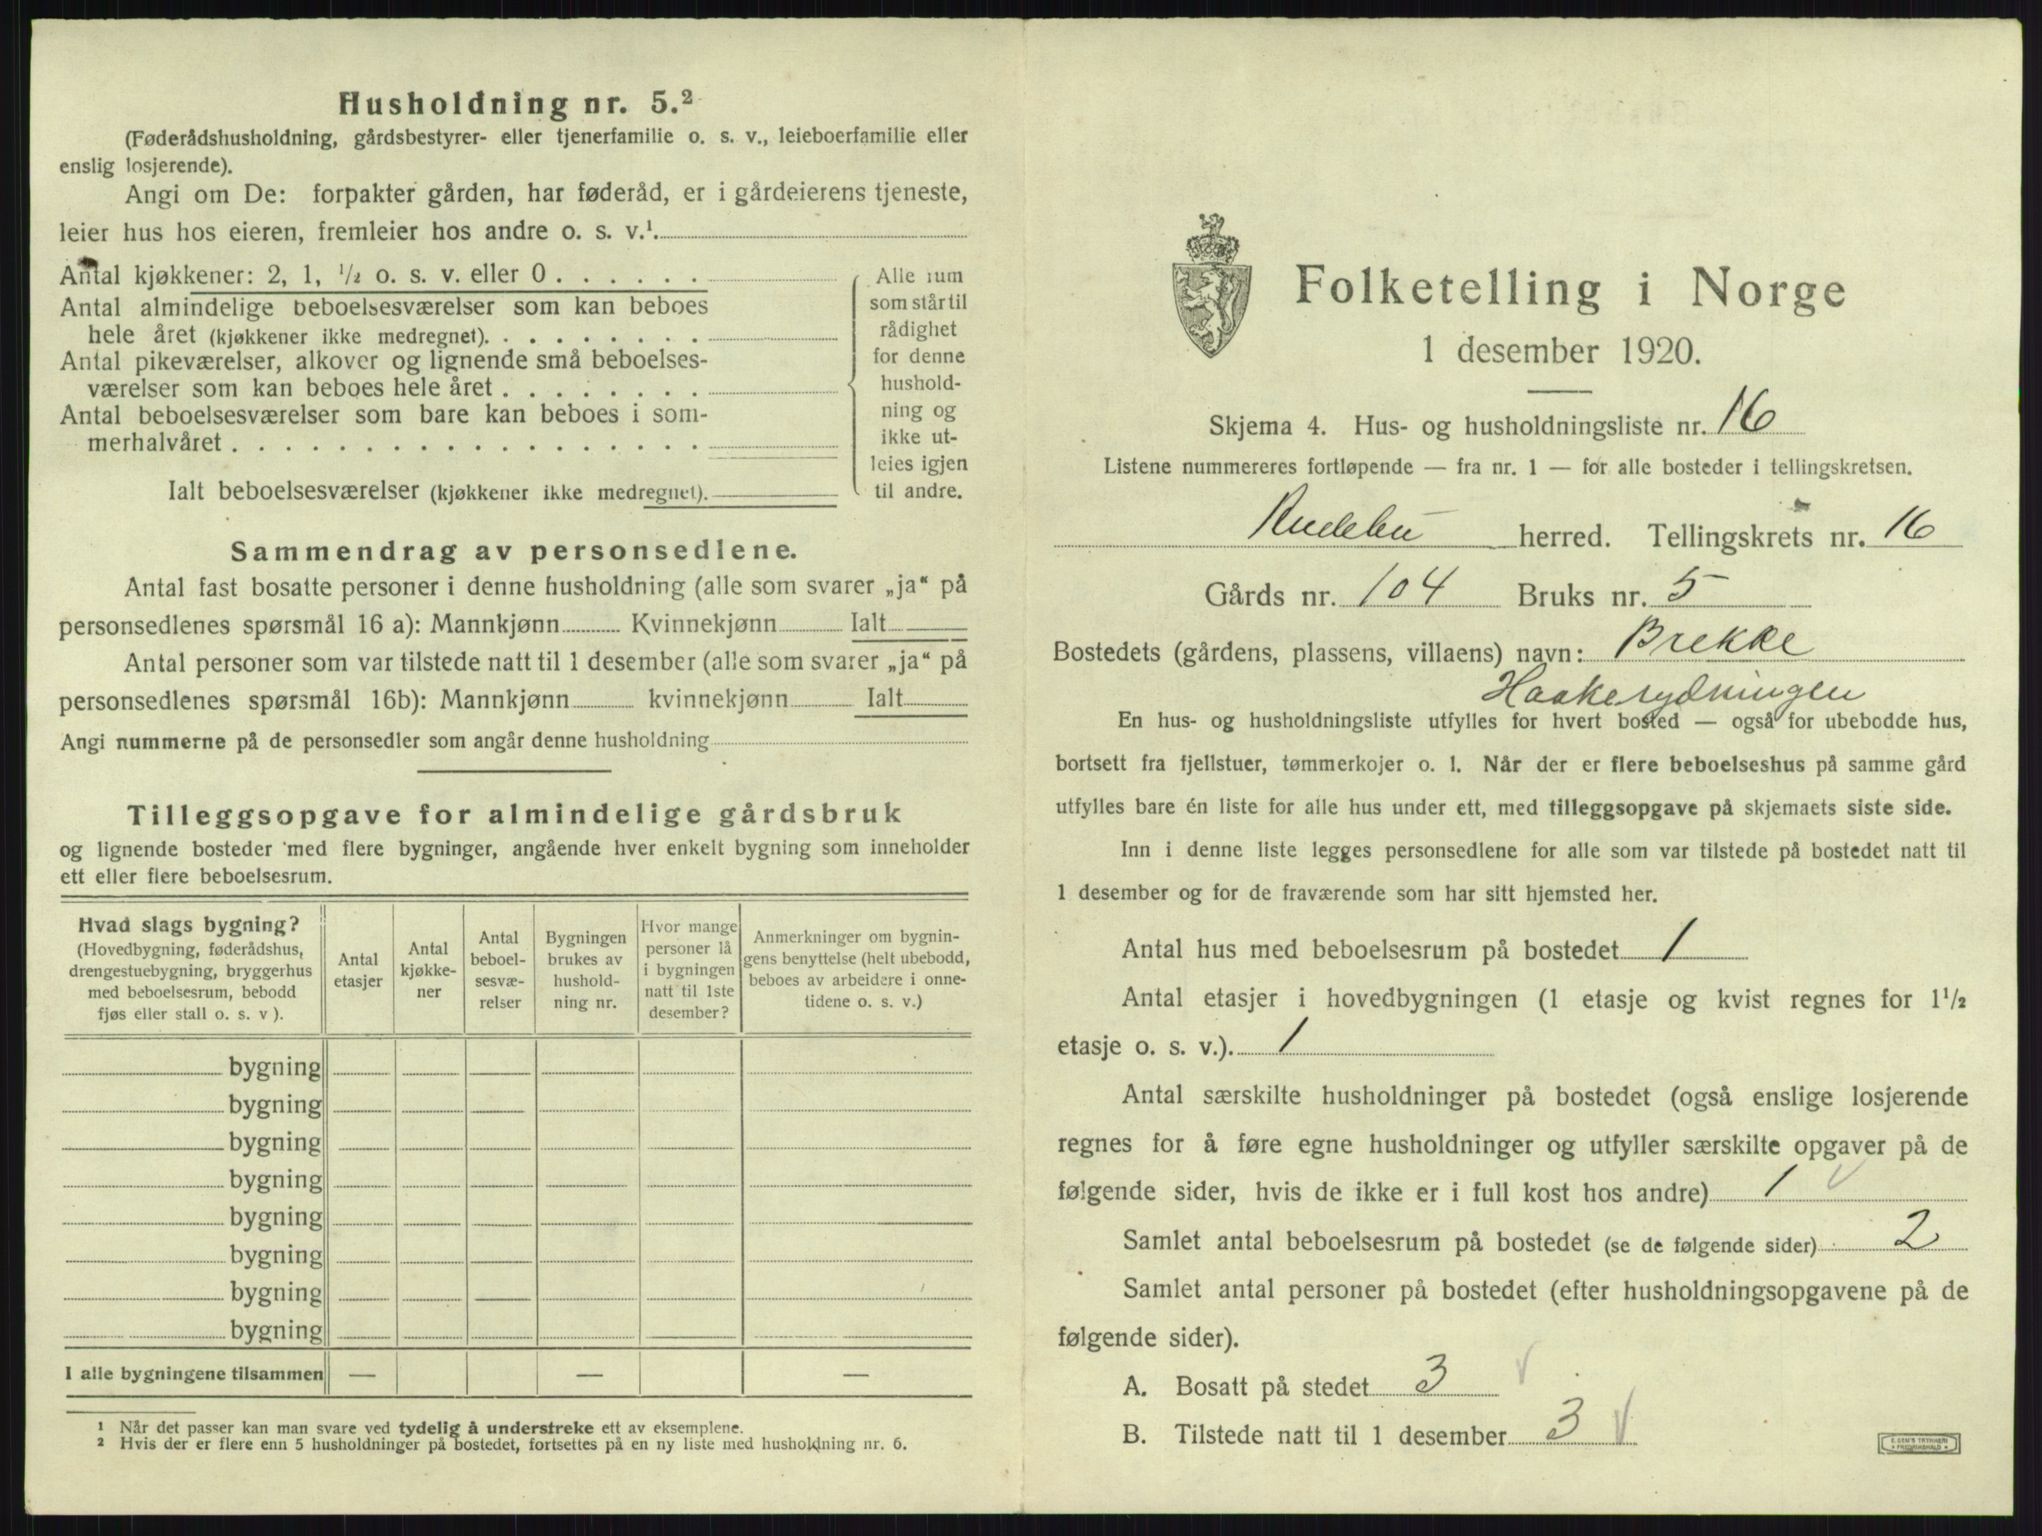 Husholdning nr. 5.²
(Føderådshusholdning, gårdsbestyrer- eller tjenerfamilie o. s. v., leieboerfamilie eller
enslig losjerende).
Angi om De: forpakter gården, har føderåd, er i gårdeierens tjeneste,
leier hus hos eieren, fremleier hos andre o. s. v.¹
Antal kjøkkener: 2, 1, ½ o. s. v. eller 0 . . . . . .
Antal almindelige beboelsesværelser som kan beboes
hele året (kjøkkener ikke medregnet). . . . . . . . .
Antal pikeværelser, alkover og lignende små beboelses-
værelser som kan beboes hele året . . . . . . . .
Antal beboelsesværelser som bare kan beboes i som-
merhalvåret . . . . . . . . . . . . . . . . . .
Ialt beboelsesværelser (kjøkkener ikke medregnet).
Alle rum
som står til
rådighet
for denne
hushold-
ning og
ikke ut-
leies igjen
til andre.
Sammendrag av personsedlene.
Antal fast bosatte personer i denne husholdning (alle som svarer „ja“ på
personsedlenes spørsmål 16 a): Mannkjønn Kvinnekjønn Ialt
Antal personer som var tilstede natt til 1 desember (alle som svarer „ja“ på
personsedlenes spørsmål 16b): Mannkjønn kvinnekjønn Ialt
Angi nummerne på de personsedler som angår denne husholdning
Tilleggsopgave for almindelige gårdsbruk
og lignende bosteder med flere bygninger, angående hver enkelt bygning som inneholder
ett eller flere beboelsesrum.
Hvad slags bygning?
(Hovedbygning, føderådshus,
drengestuebygning, bryggerhus
med beboelsesrum, bebodd
fjøs eller stall o. s. v ).
Antal
etasjer
Antal
kjøkke-
ner
Antal
beboel-
sesvæ-
relser
Bygningen
brukes av
hushold-
ning nr.
Hvor mange
personer lå
i bygningen
natt til 1ste
desember?
Anmerkninger om bygnin-
gens benyttelse (helt ubebodd,
beboes av arbeidere i onne-
tidene o. s. v.)
bygning
bygning
bygning
bygning
bygning
bygning
bygning
bygning
I alle bygningene tilsammen — — —
¹ Når det passer kan man svare ved tydelig å understreke ett av eksemplene.
² Hvis der er flere enn 5 husholdninger på bostedet, fortsettes på en ny liste med husholdning nr. 6.
Folketelling i Norge
1 desember 1920.
Skjema 4. Hus- og husholdningsliste nr. 16
Listene nummereres fortløpende — fra nr. 1 — for alle bosteder i tellingskretsen.
herred. Tellingskrets nr. 16
Gårds nr. 104 Bruks nr. 5
Bostedets (gårdens, plassens, villaens) navn: Brekke
Haakerydningen
En hus- og husholdningsliste utfylles for hvert bosted — også for ubebodde hus,
bortsett fra fjellstuer, tømmerkojer o. l. Når der er flere beboelseshus på samme gård
utfylles bare én liste for alle hus under ett, med tilleggsopgave på skjemaets siste side.
Inn i denne liste legges personsedlene for alle som var tilstede på bostedet natt til
1 desember og for de fraværende som har sitt hjemsted her.
Antal hus med beboelsesrum på bostedet 1
Antal etasjer i hovedbygningen (1 etasje og kvist regnes for 1½
etasje o. s. v.). 1
Antal særskilte husholdninger på bostedet (også enslige losjerende
regnes for å føre egne husholdninger og utfyller særskilte opgaver på de
følgende sider, hvis de ikke er i full kost hos andre) 1
Samlet antal beboelsesrum på bostedet (se de følgende sider) 2
Samlet antal personer på bostedet (efter husholdningsopgavene på de
følgende sider).
A. Bosatt på stedet 3
B. Tilstede natt til 1 desember 3
E. SEM'S TRYKKERI
• FREDRIKSHALD •